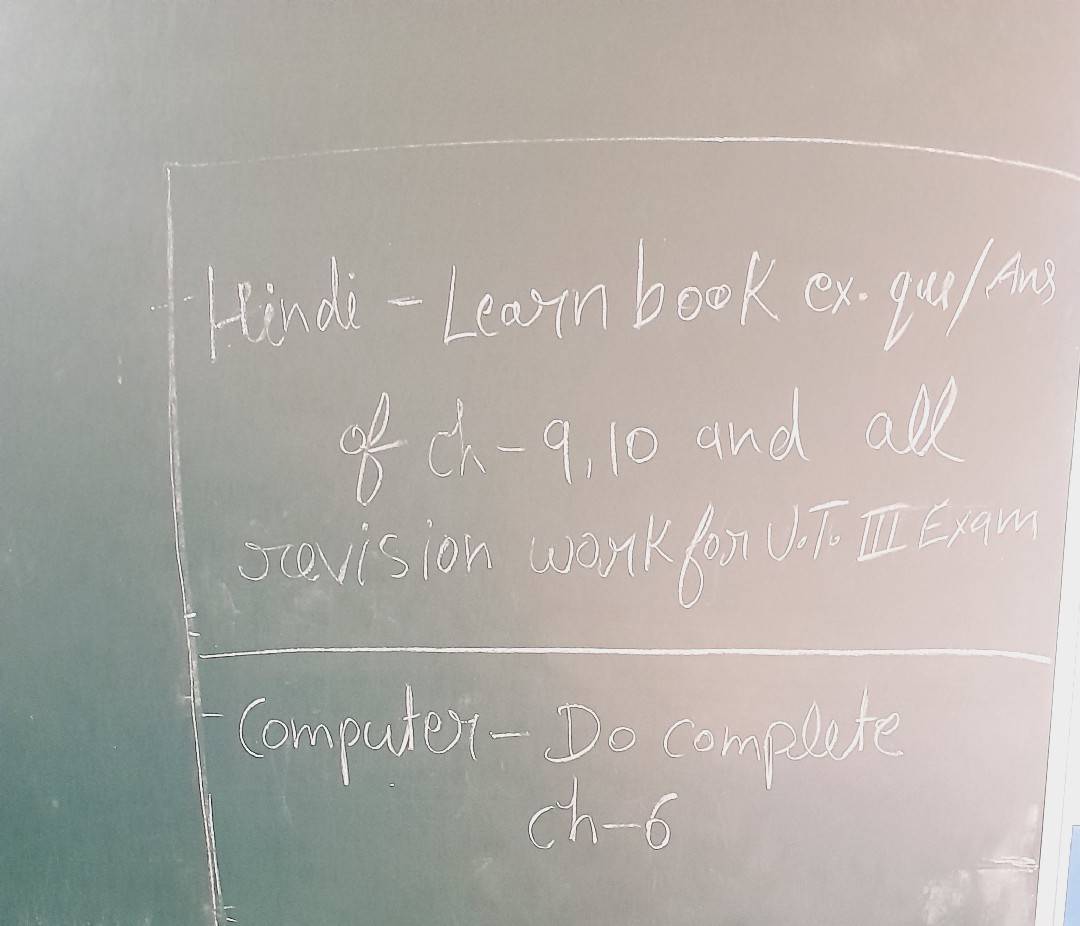 Hindi - Learn book ex. que/Ans
of ch-9,10 and all
revision work for U.T. III Exam
Computer - Do complete
ch-6